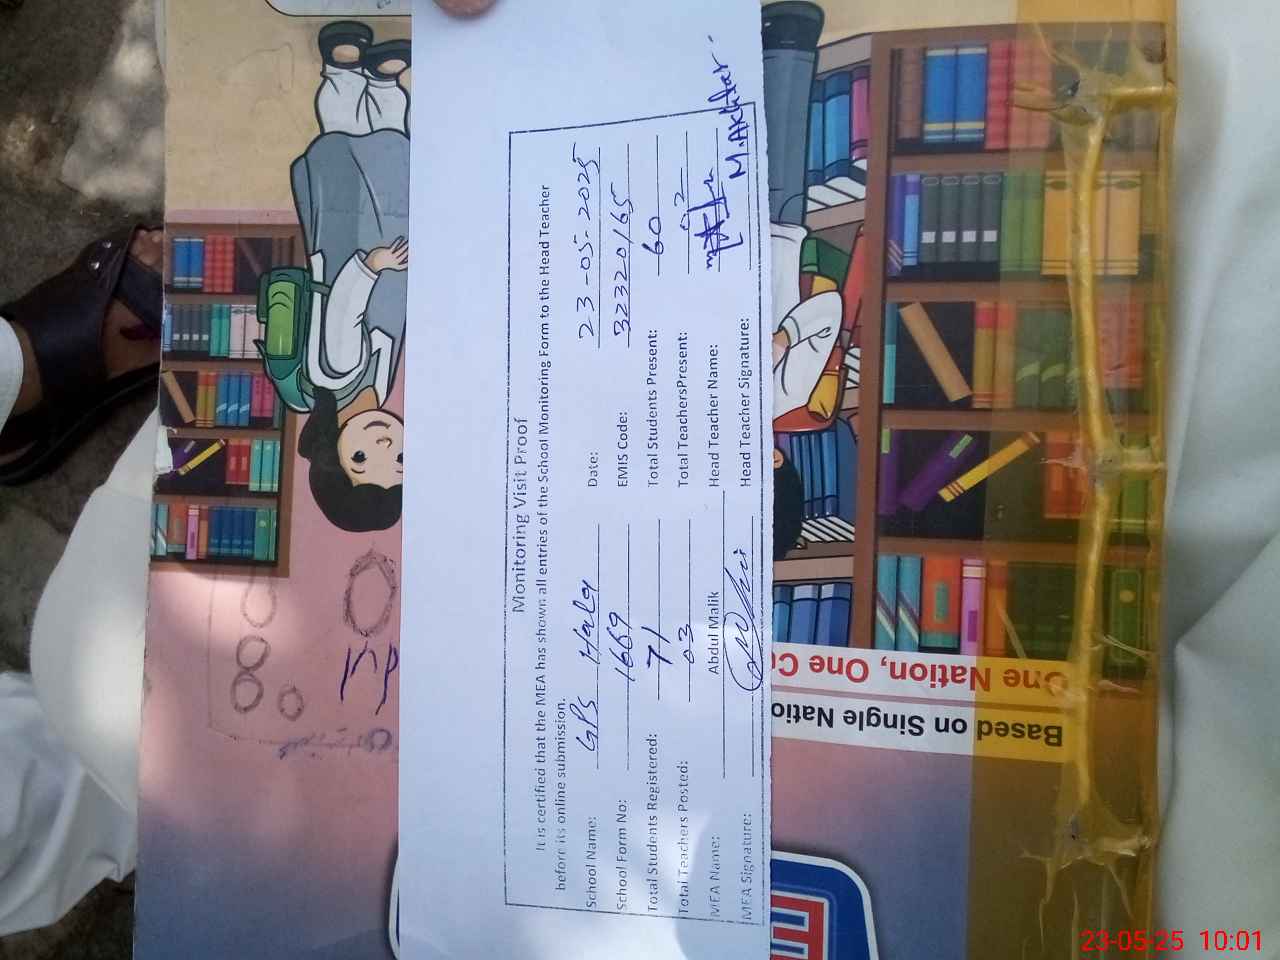 Monitoring Visit Proof
It is certified that the MEA has shown all entries of the School Monitoring Form to the Head Teacher
before its online submission.
School Name: GPS Date: 23-05-2025
School Form No: 1669 EMIS Code: 32320165
Total Students Registered: 71 Total Students Present: 60
Total Teachers Posted: 03 Total TeachersPresent: 02
MEA Name: Abdul Malik Head Teacher Name:
MEA Signature: Head Teacher Signature: M.Akhtar
One Nation, One Cu
Based on Single Natio
23-05-25 10:01